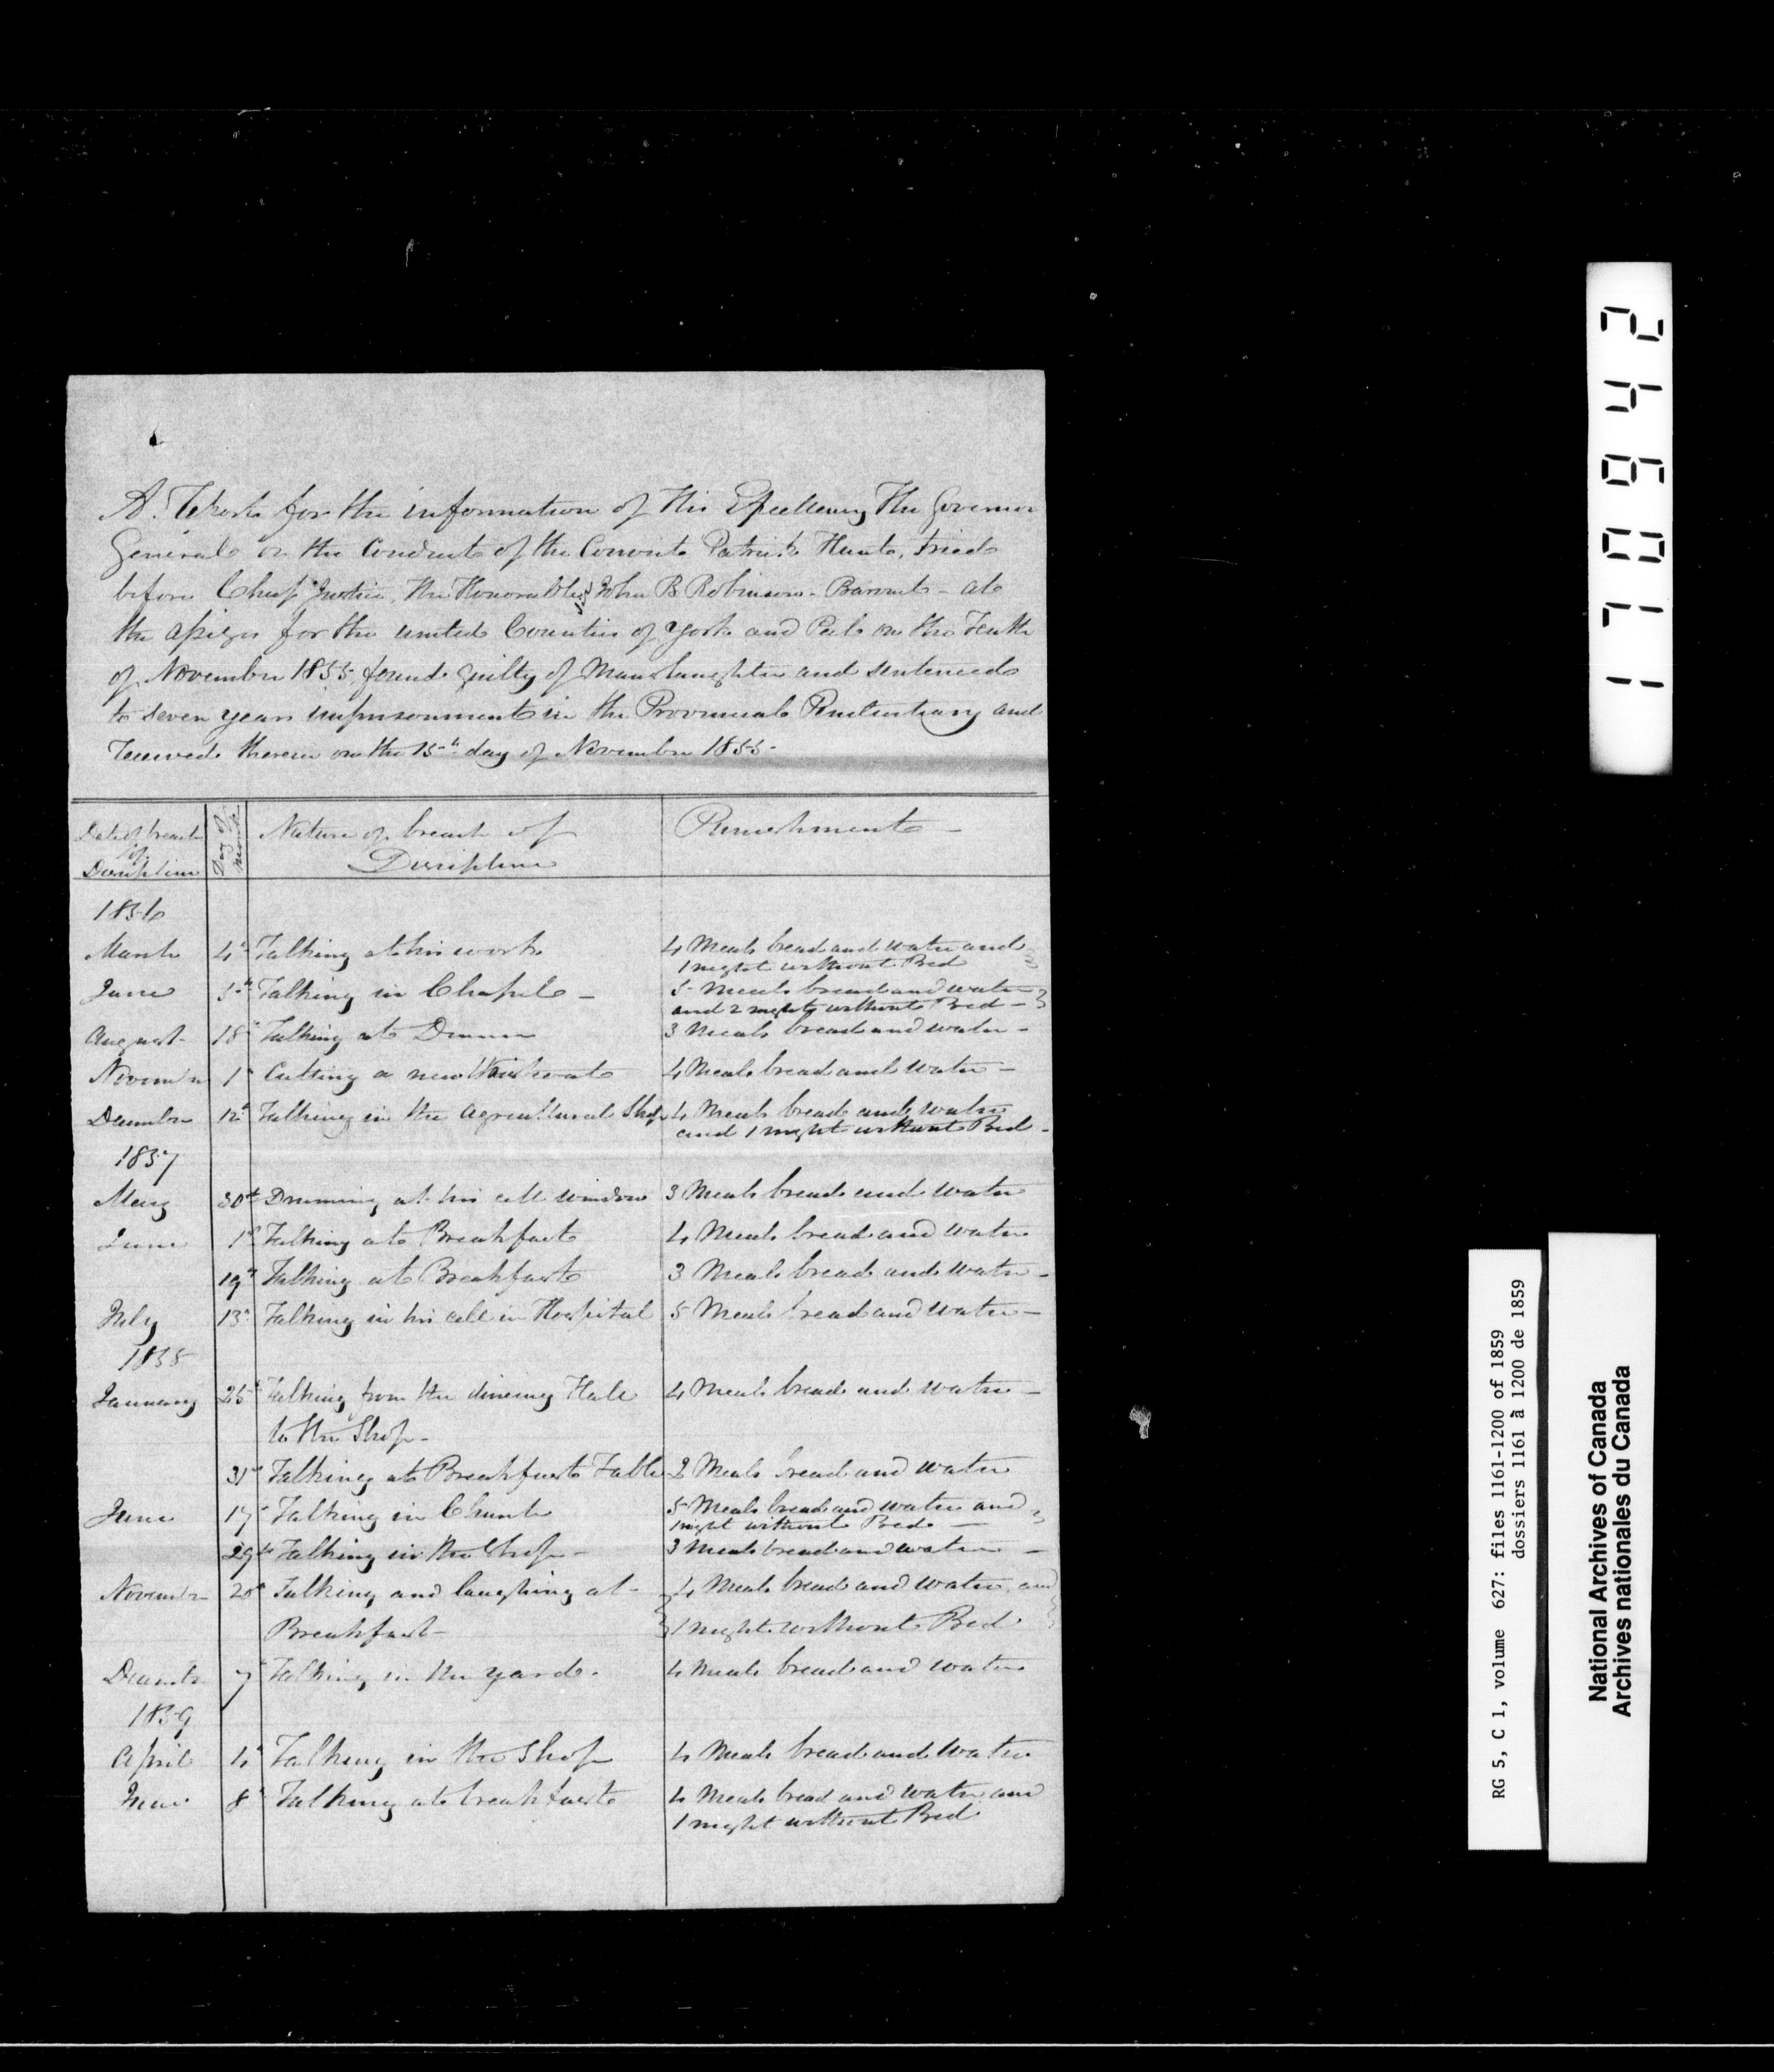 A Report for the information of His Excellency The Governor
General on the Conduct of the Convict Patrick Hunt, tried
before Chief Justice, The Honorable Sir John B Robinson - Baronet - at
the assizes for the united Counties of York and Peel on the Tenth
of November 1855, found guilty of Manslaughter and sentenced
to seven years imprisonment in the Provincial Penitentiary and
received therein on the 15th day of November 1855 -
Date of breach of Discipline | Day of | Nature of breach of Discipline | Punishment -
1856
March 4th Talking at his work 4 Meals bread and water and
1 night without Bed
June 5th Talking in Chapel - 5 Meals bread and water
and 2 nights without Bed -
August 18th Talking at Dinner 3 Meals bread and water -
November 1st Cutting a new 4 Meals bread and water -
December 12th Talking in the Agricultural Shop 4 Meals bread and water
and 1 night without Bed -
1857
May 30th Drumming at his cell window 3 Meals bread and water
June 1st Talking at Breakfast 4 Meals bread and water
19th Talking at Breakfast 3 Meals bread and water -
July 13th Talking in his cell in Hospital 5 Meals bread and water -
1858
January 25th Talking from the dineing Hall 4 Meals bread and water -
to the Shop -
31st Talking at Breakfast Table 2 Meals bread and water
June 17th Talking in Church 5 Meals bread and water and
1 night without Bed -
29th Talking in the Shop - 3 Meals bread and water -
November 20th Talking and laughing at - 4 Meals bread and water and
Breakfast - 1 night without Bed
December 7th Talking in the yard - 4 Meals bread and water
1859
April 4th Talking in the Shop 4 Meals bread and water
8th Talking at breakfast 4 Meals bread and water and
1 night without Bed
170942
RG 5, C 1, volume 627: files 1161-1200 of 1859
dossiers 1161 à 1200 de 1859
National Archives of Canada
Archives nationales du Canada